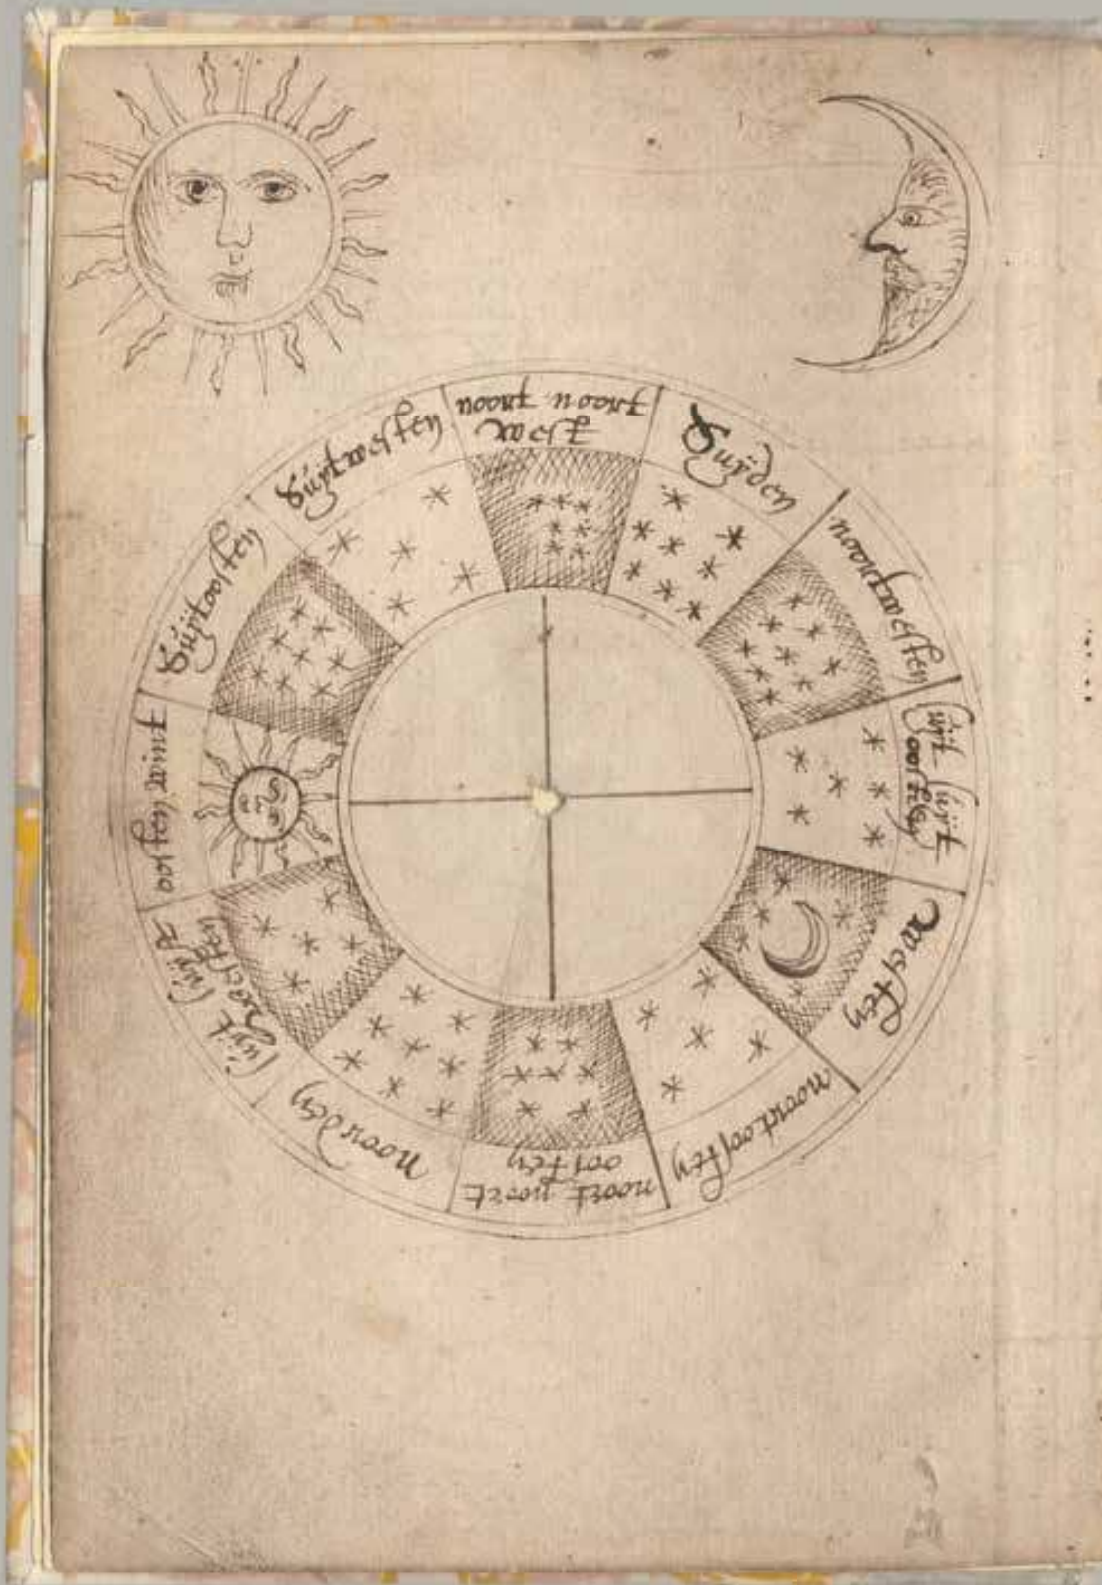 noort noort
west
Suÿden
noortwesten
suÿt suÿt
oosten
westen
noortoosten
noort noort
oosten
noorden
suÿt suÿt
westen
oosten wint
Suÿtoosten
Suÿtwesten